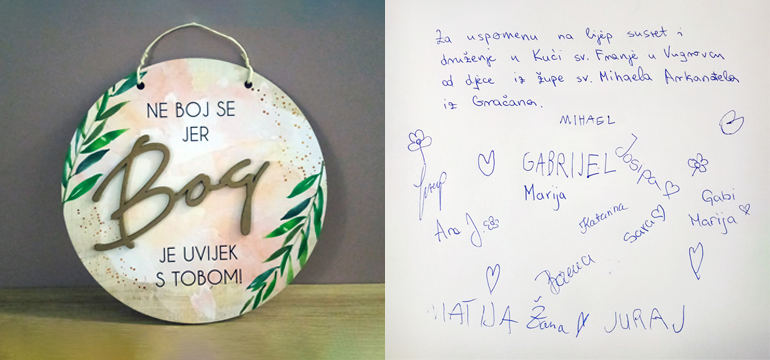 NE BOJ SE
JER
Bog
JE UVIJEK
S TOBOM!
Za uspomenu na lijep susret i
druženje u Kući sv. Franje u Vugrovcu
od djece iz župe sv. Mihaela Arkanđela
iz Gračana.
MIHAEL
GABRIJEL
Josipa
Marija
Gabi
Marija
Ana J
Katarina
Sara
Božena
MATIJA
Žana
JURAJ